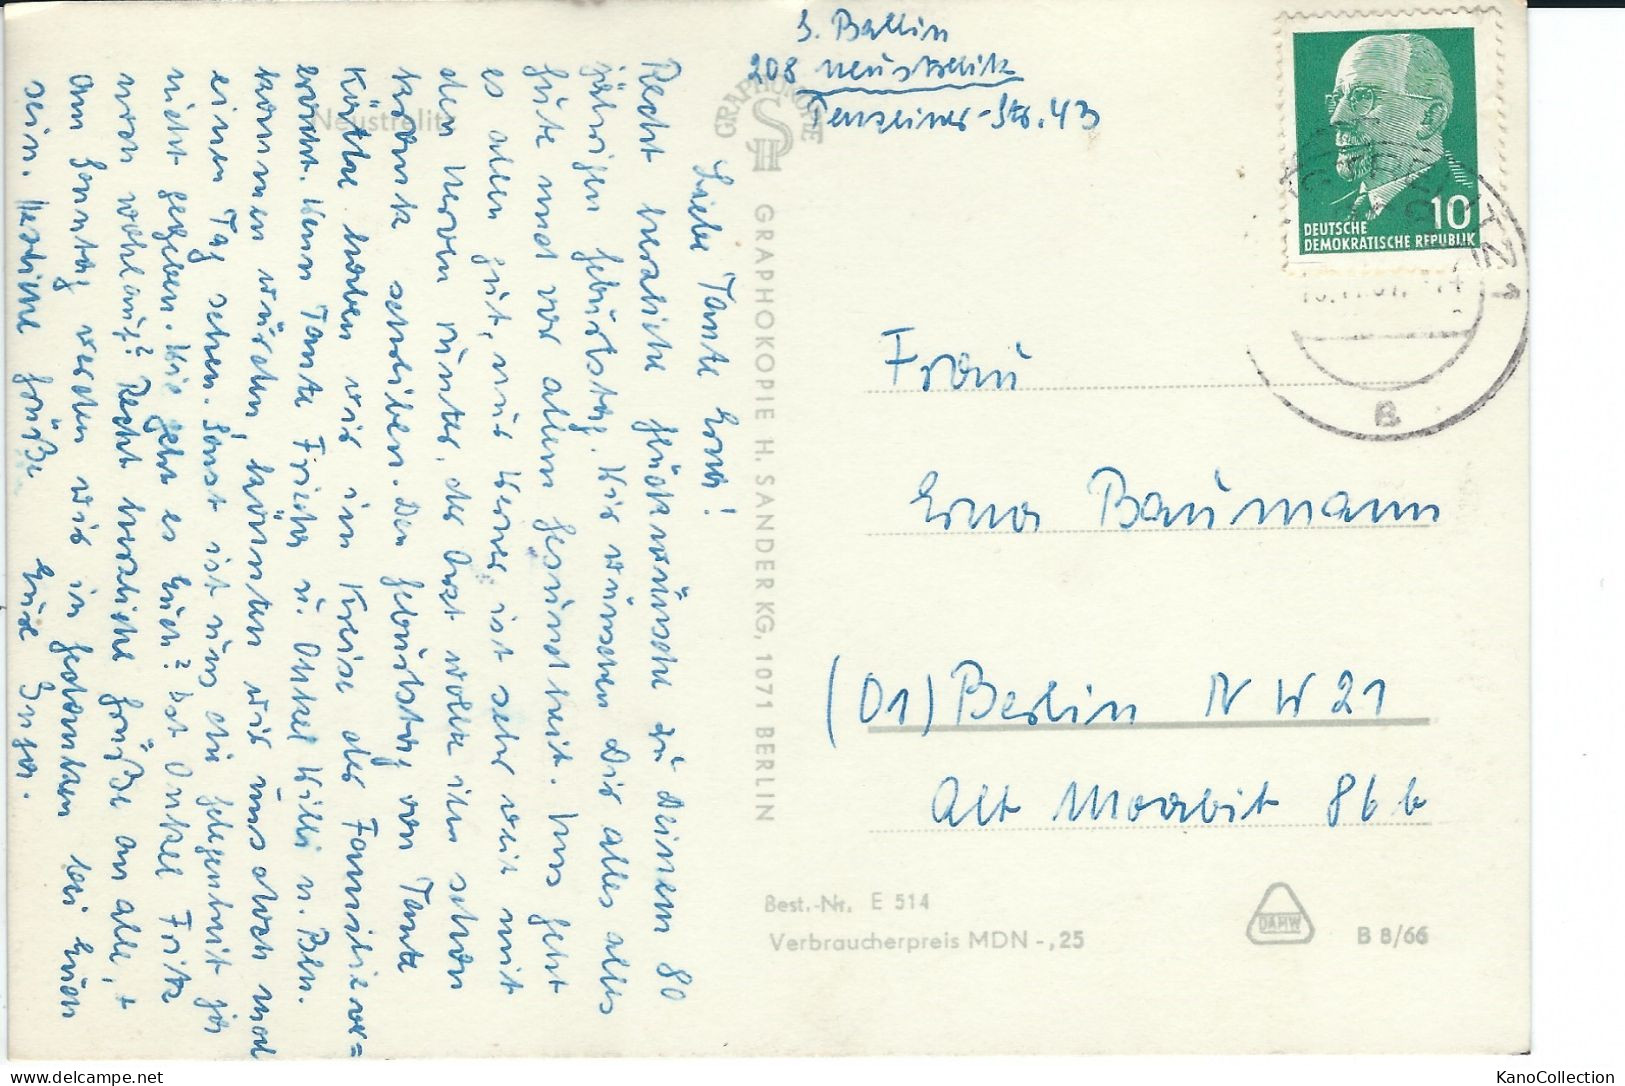 J. Ballin
208 Neustrelitz
Penzliner-Str. 43
DEUTSCHE
DEMOKRATISCHE REPUBLIK
10
Neustrelitz
GRAPHOKOPIE
GRAPHOKOPIE H. SANDER KG, 1071 BERLIN
Liebe Tante Erna!
Recht herzliche Glückwünsche zu Deinem 80
jährigen Geburtstag. Wir wünschen Dir alles alles
Gute und vor allem Gesundheit. Uns geht
es allen gut, nur Werner ist sehr weit mit
den Nerven runter, der Arzt wollte ihn schon
krank schreiben. Den Geburtstag von Tante
Käthe haben wir im Kreise der Familie ver=
bracht. Wenn Tante Frieda u. Onkel Willi n. Bln.
kommen würden, könnten wir uns doch mal
einen Tag sehen. Sonst ist uns die Gelegenheit ja
nicht gegeben. Wie geht es Euch? Ist Onkel Fritz
man wohlauf? Recht herzliche Grüße an alle, +
am Sonntag werden wir in Gedanken bei Euch
sein. Herzliche Grüße Eure Inger.
Frau
Erna Baumann
(01) Berlin NW 21
Alt Moabit 86 b
Best.-Nr. E 514
Verbraucherpreis MDN -,25
DAMW
B 8/66
KanoCollection